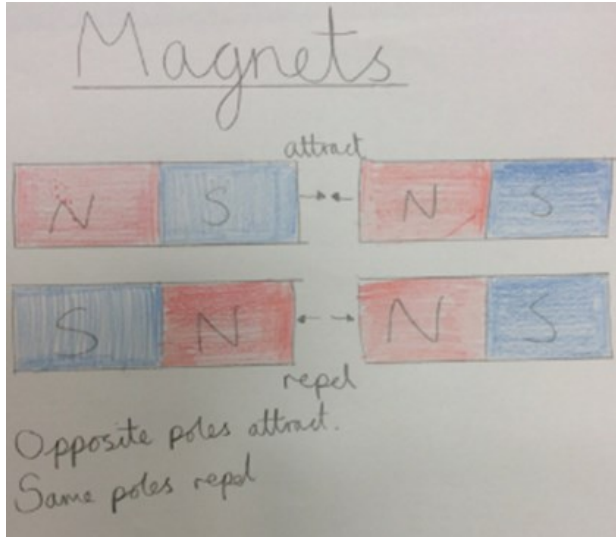 Magnets
attract
N S N S
S N N S
repel
Opposite poles attract.
Same poles repel